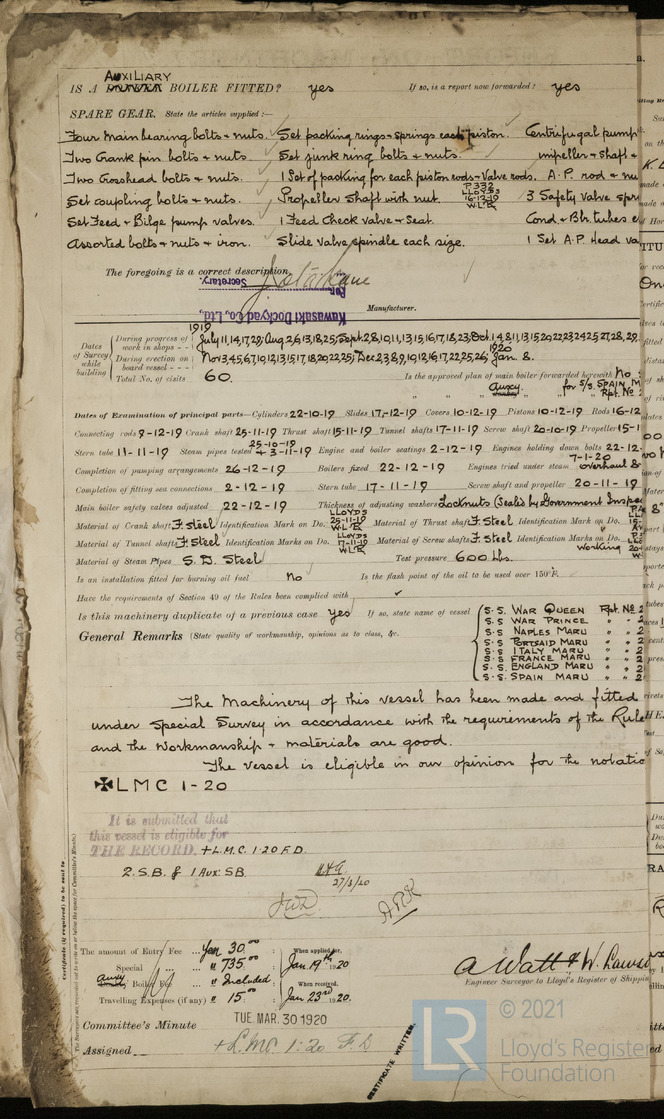 AUXILIARY
IS A DONKEY BOILER FITTED? yes If so, is a report now forwarded? yes
SPARE GEAR. State the articles supplied:—
Four Main bearing bolts & nuts. Set packing rings & springs each piston. Centrifugal pump
Two Crank pin bolts & nuts. Set junk ring bolts & nuts. impeller & shaft &
Two Crosshead bolts & nuts. 1 Set of packing for each piston rods & valve rods. A.P. rod & nu
Set coupling bolts & nuts. Propeller Shaft with nut. P332 LLOYDS 16-12-19 W.L.R 3 Safety Valve spr
Set Feed & Bilge pump valves. 1 Feed Check Valve & Seat. Cond. & Blr. tubes
Assorted bolts & nuts & iron. Slide Valve spindle each size. 1 Set A.P. Head va
The foregoing is a correct description,
Secretary.
For
Kawasaki Dockyard Co., Ltd. Manufacturer.
1919
Dates of Survey while building
During progress of work in shops - - July 11,14,17,29; Aug 2,6,13,18,25; Sept 2,8,10,11,13,15,16,17,18,23; Oct 1,4,8,11,13,15,20,22,23,24,25,27,28,29,
1920
During erection on board vessel - - - Nov 3,4,5,6,7,10,12,13,15,17,18,20,22,25; Dec 2,3,8,9,10,12,16,17,22,25,26; Jan 8.
Total No. of visits 60. Is the approved plan of main boiler forwarded herewith No
" " " auxy. donkey " for S/S. SPAIN M Rpt. No 2
Dates of Examination of principal parts—Cylinders 22-10-19 Slides 17-12-19 Covers 10-12-19 Pistons 10-12-19 Rods 16-12
Connecting rods 9-12-19 Crank shaft 25-11-19 Thrust shaft 15-11-19 Tunnel shafts 17-11-19 Screw shaft 20-10-19 Propeller 15-1
Stern tube 11-11-19 Steam pipes tested 25-10-19 & 3-11-19 Engine and boiler seatings 2-12-19 Engines holding down bolts 22-12-
Completion of pumping arrangements 26-12-19 Boilers fixed 22-12-19 Engines tried under steam 7-1-20 overhaul &
Completion of fitting sea connections 2-12-19 Stern tube 17-11-19 Screw shaft and propeller 20-11-19
Main boiler safety valves adjusted 22-12-19 Thickness of adjusting washers Locknuts (Sealed by Government Inspec
Material of Crank shaft F. Steel Identification Mark on Do. LLOYDS 25-11-19 W.L.R Material of Thrust shaft F. Steel Identification Mark on Do.
Material of Tunnel shafts F. Steel Identification Marks on Do. LLOYDS 17-11-19 W.L.R Material of Screw shafts F. Steel Identification Marks on Do.
Material of Steam Pipes S. D. Steel Test pressure 600 Lbs. Working
Is an installation fitted for burning oil fuel No Is the flash point of the oil to be used over 150°F.
Have the requirements of Section 49 of the Rules been complied with ✓
Is this machinery duplicate of a previous case yes If so, state name of vessel S.S. WAR QUEEN Rpt. No 2
S.S WAR PRINCE " " 2
General Remarks (State quality of workmanship, opinions as to class, &c. S.S NAPLES MARU " " 2
S.S PORTSAID MARU " " 2
S.S ITALY MARU " " 2
S.S FRANCE MARU " " 2
S.S. ENGLAND MARU " " 2
S.S. SPAIN MARU " " 2
The Machinery of this vessel has been made and fitted
under Special Survey in accordance with the requirements of the Rule
and the Workmanship & materials are good.
The vessel is eligible in our opinion for the notatio
✠ L M C 1-20
It is submitted that
this vessel is eligible for
THE RECORD. + L.M.C. 1.20 F.D.
2.S.B. & 1 Aux: SB.
27/3/20
Certificate (if required) to be sent to
(The Surveyors are requested not to write on or below the space for Committee's Minute.)
The amount of Entry Fee ... Yen 30.00 When applied for,
Special ... " 735.00 Jan. 19th 1920
auxy Donkey Boiler Fee ... " Included When received,
Travelling Expenses (if any) " 15.00 Jan 23rd 1920.
A Watt & W. Lawso
Engineer Surveyor to Lloyd's Register of Shippin
Committee's Minute TUE. MAR. 30 1920
Assigned + L.M.C. 1:20 F.D
CERTIFICATE WRITTEN.
LR © 2021
Lloyd's Register
Foundation